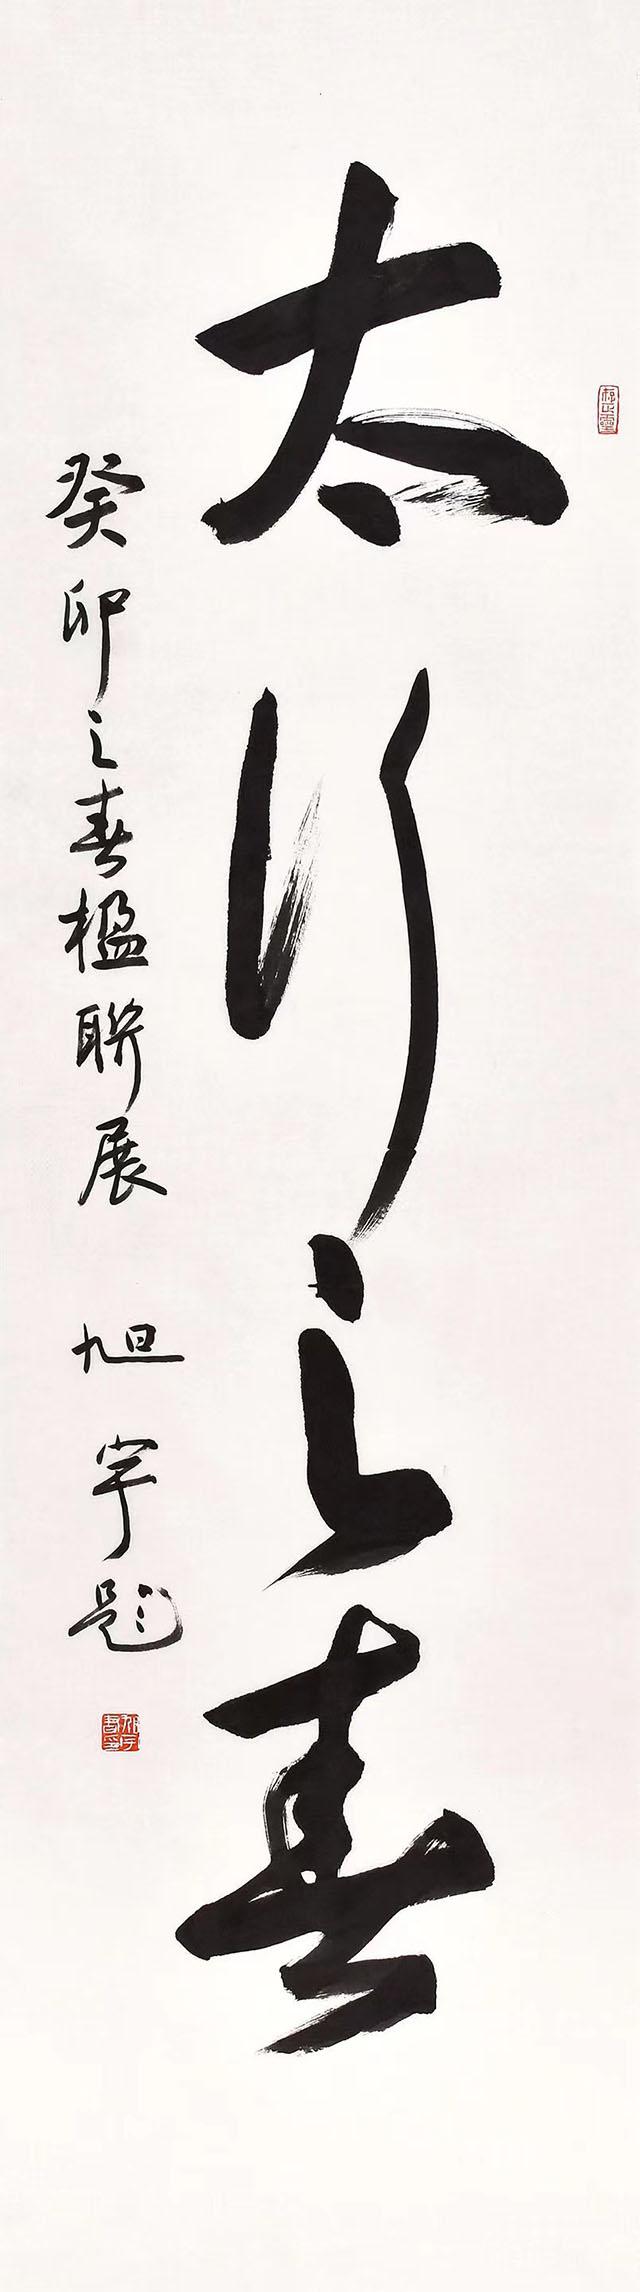 太行之春
癸卯之春楹聯展 旭宇題